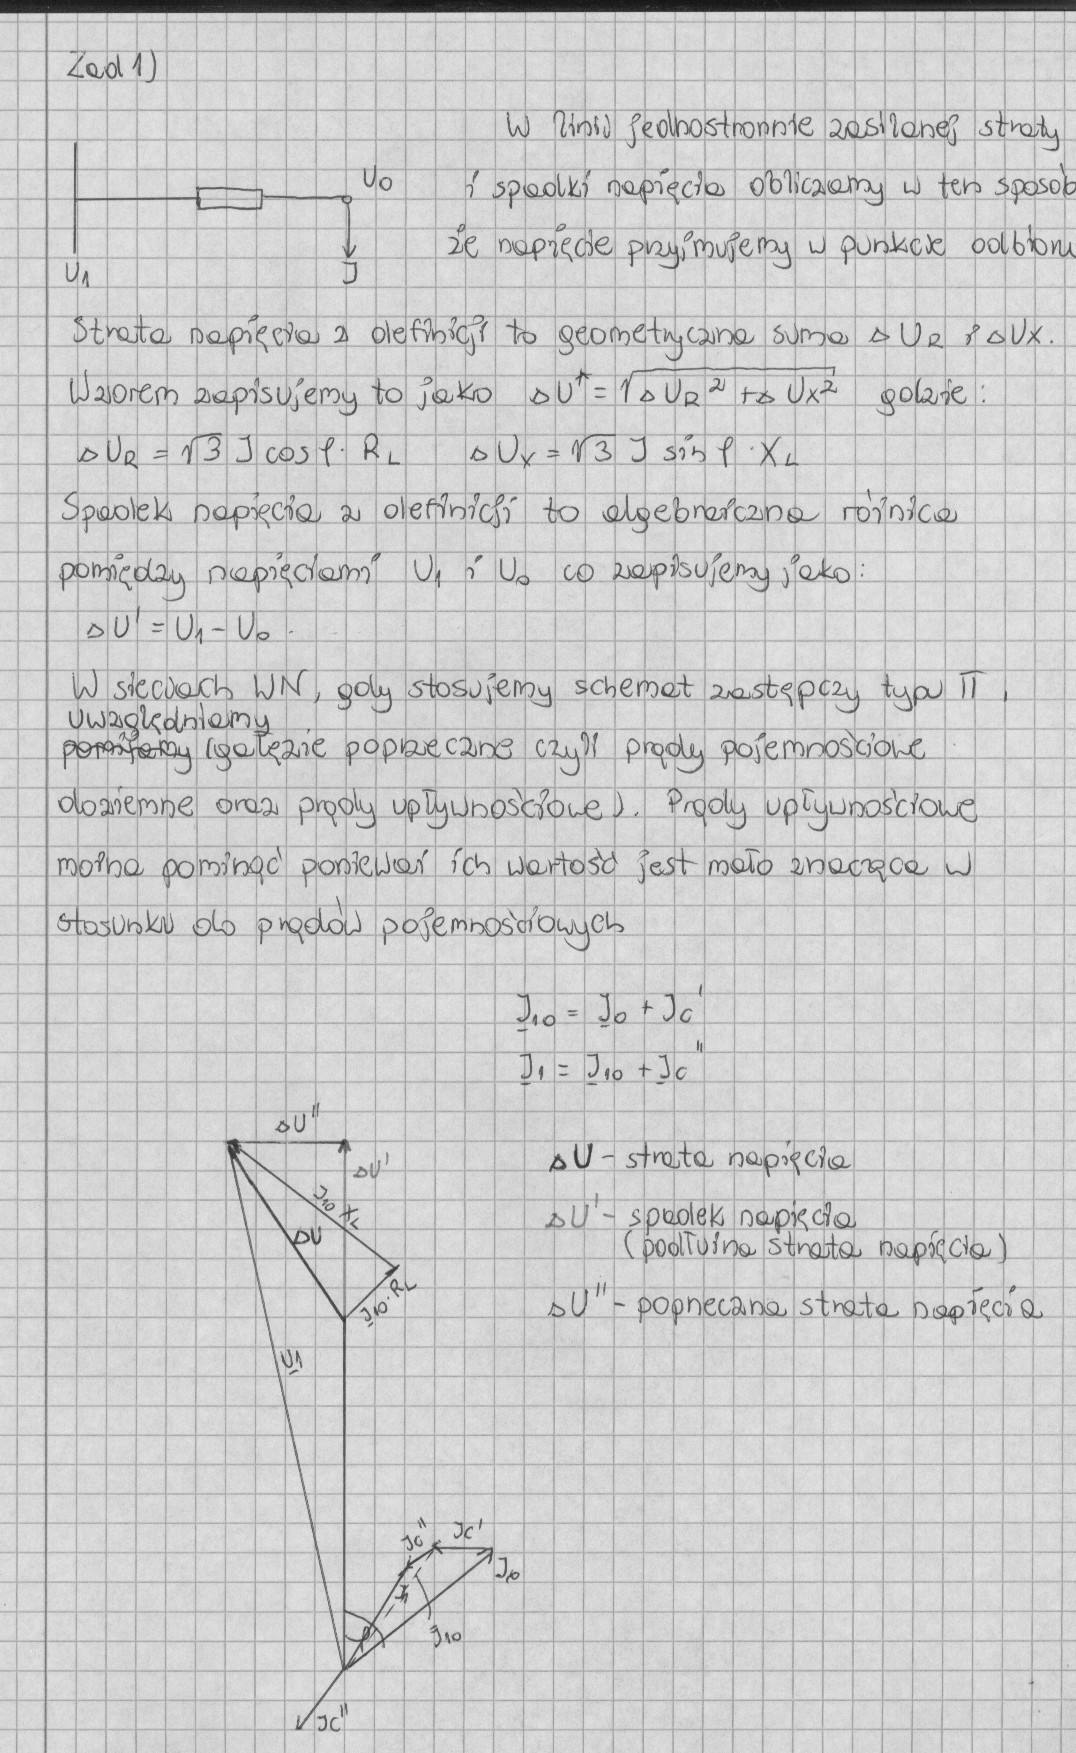 Zad 1)
W linii jednostronnie zasilanej straty
U0
i spadki napięcia obliczamy w ten sposób
że napięcie przyjmujemy w punkcie odbioru
U1
J
Strata napięcia z definicji to geometryczna suma ΔUR i ΔUX.
Wzorem zapisujemy to jako ΔU* = √ΔUR² + ΔUX² gdzie:
ΔUR = √3 J cosφ · RL ΔUX = √3 J sinφ · XL
Spadek napięcia z definicji to algebraiczna różnica
pomiędzy napięciami U1 i U0 co zapisujemy jako:
ΔU' = U1 - U0.
W sieciach WN, gdy stosujemy schemat zastępczy typu Π,
uwzględniamy
pomijamy (gałęzie poprzeczne czyli prądy pojemnościowe
doziemne oraz prądy upływnościowe). Prądy upływnościowe
można pominąć ponieważ ich wartość jest mało znacząca w
stosunku do prądów pojemnościowych
J10 = J0 + JC'
J1 = J10 + JC''
ΔU''
ΔU'
J10 XL
ΔU
J10·RL
U1
ΔU - strata napięcia
ΔU' - spadek napięcia
(podłużna strata napięcia)
ΔU'' - poprzeczna strata napięcia
JC''
JC'
J0
J1
J10
φ
JC''